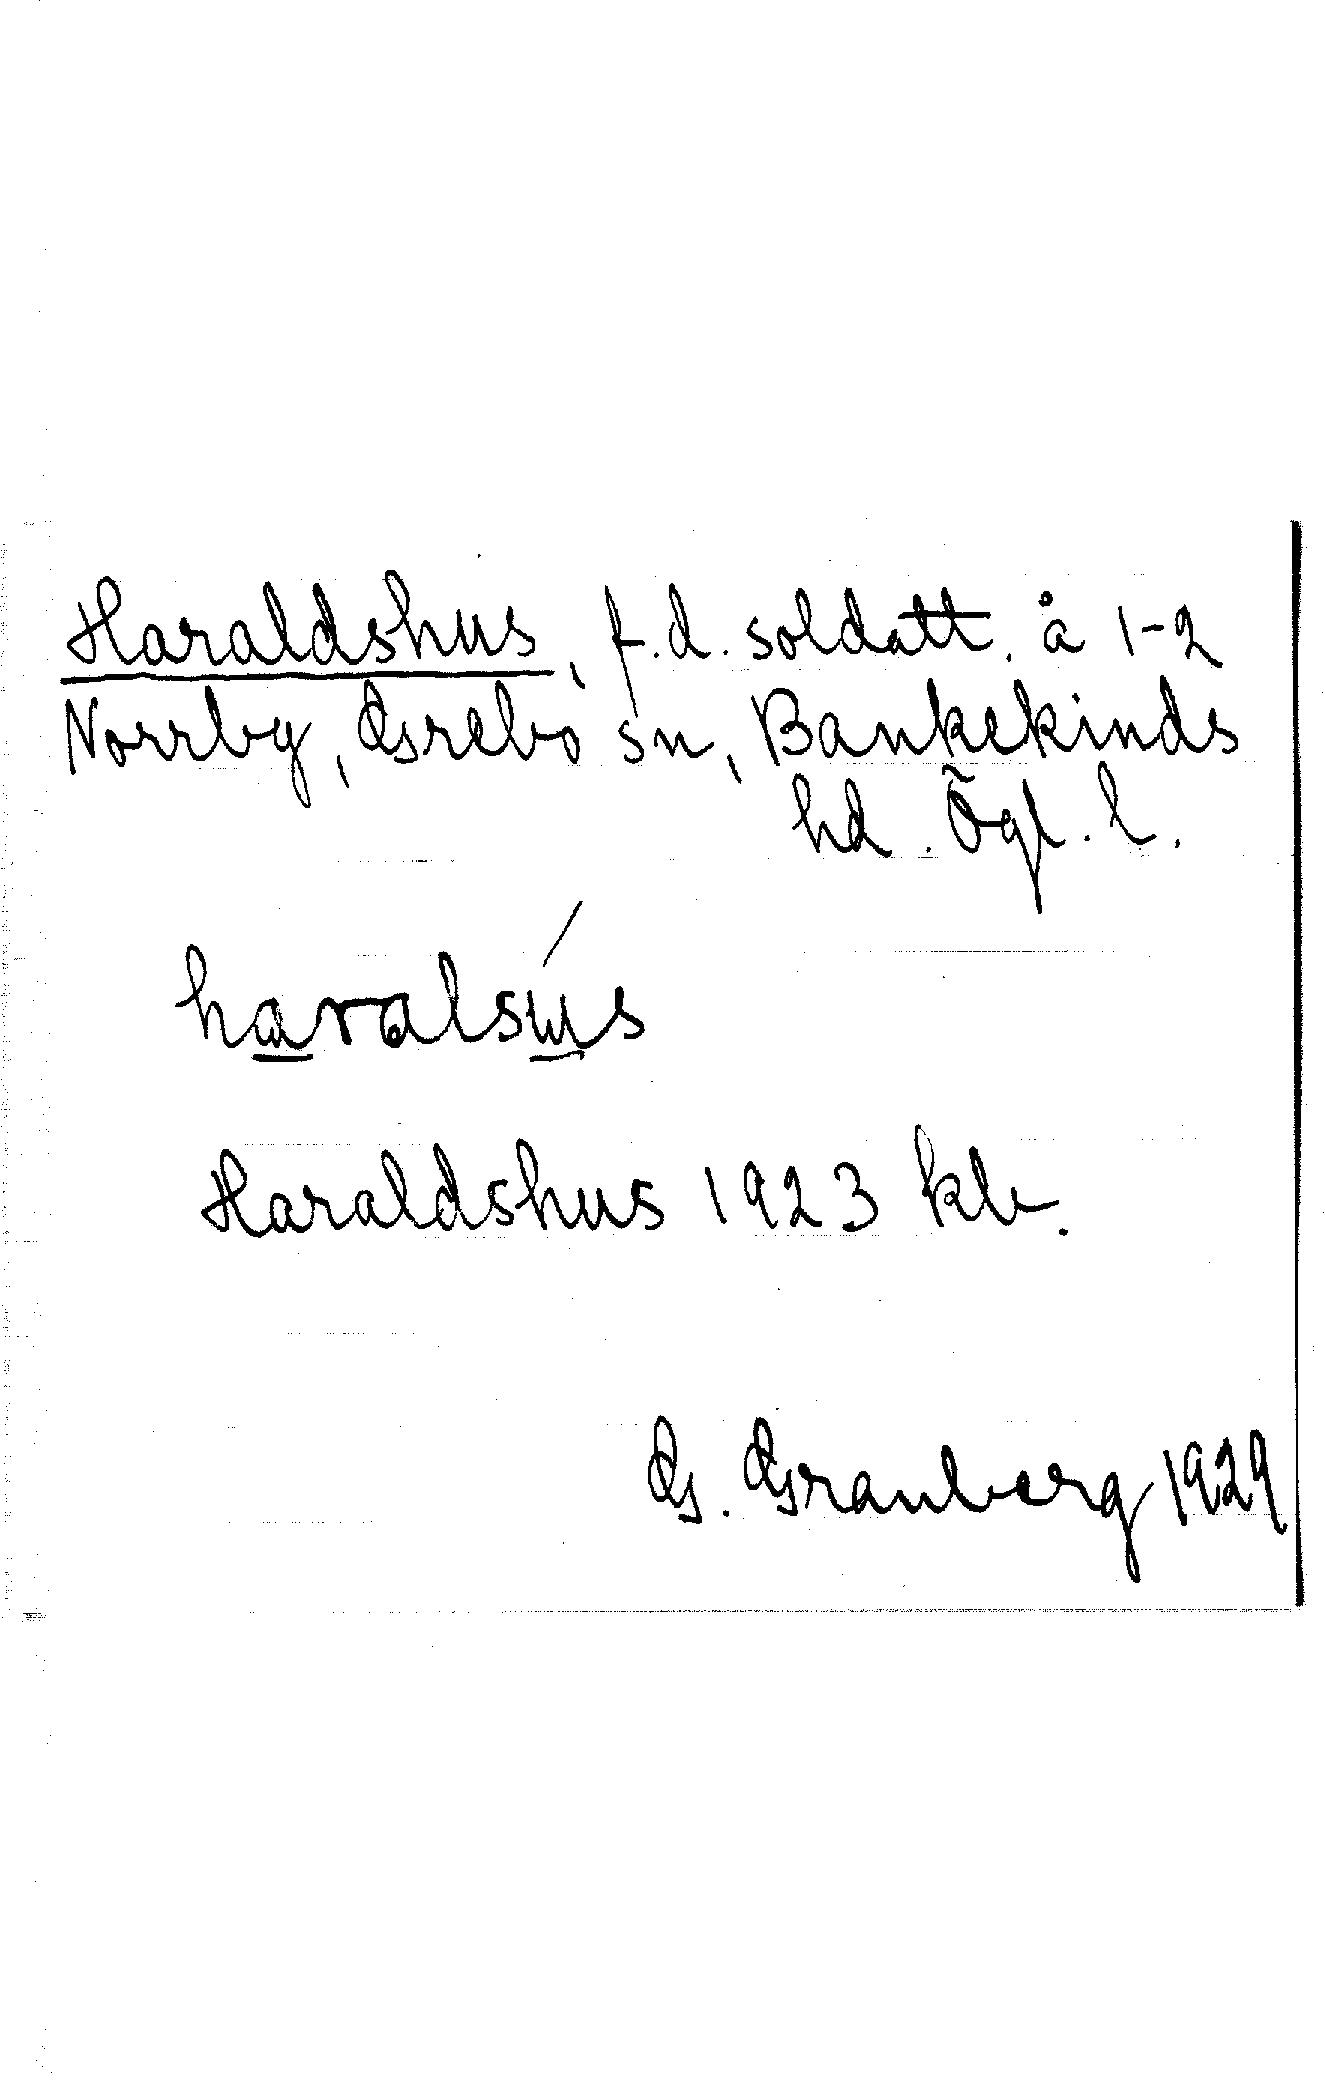 Haraldshus, f.d. soldattt. å 1-2
Norrby, Grebo sn, Bankekinds
hd. Ögl. l.
haralsús
Haraldshus 1923 kb.
G. Granberg 1929